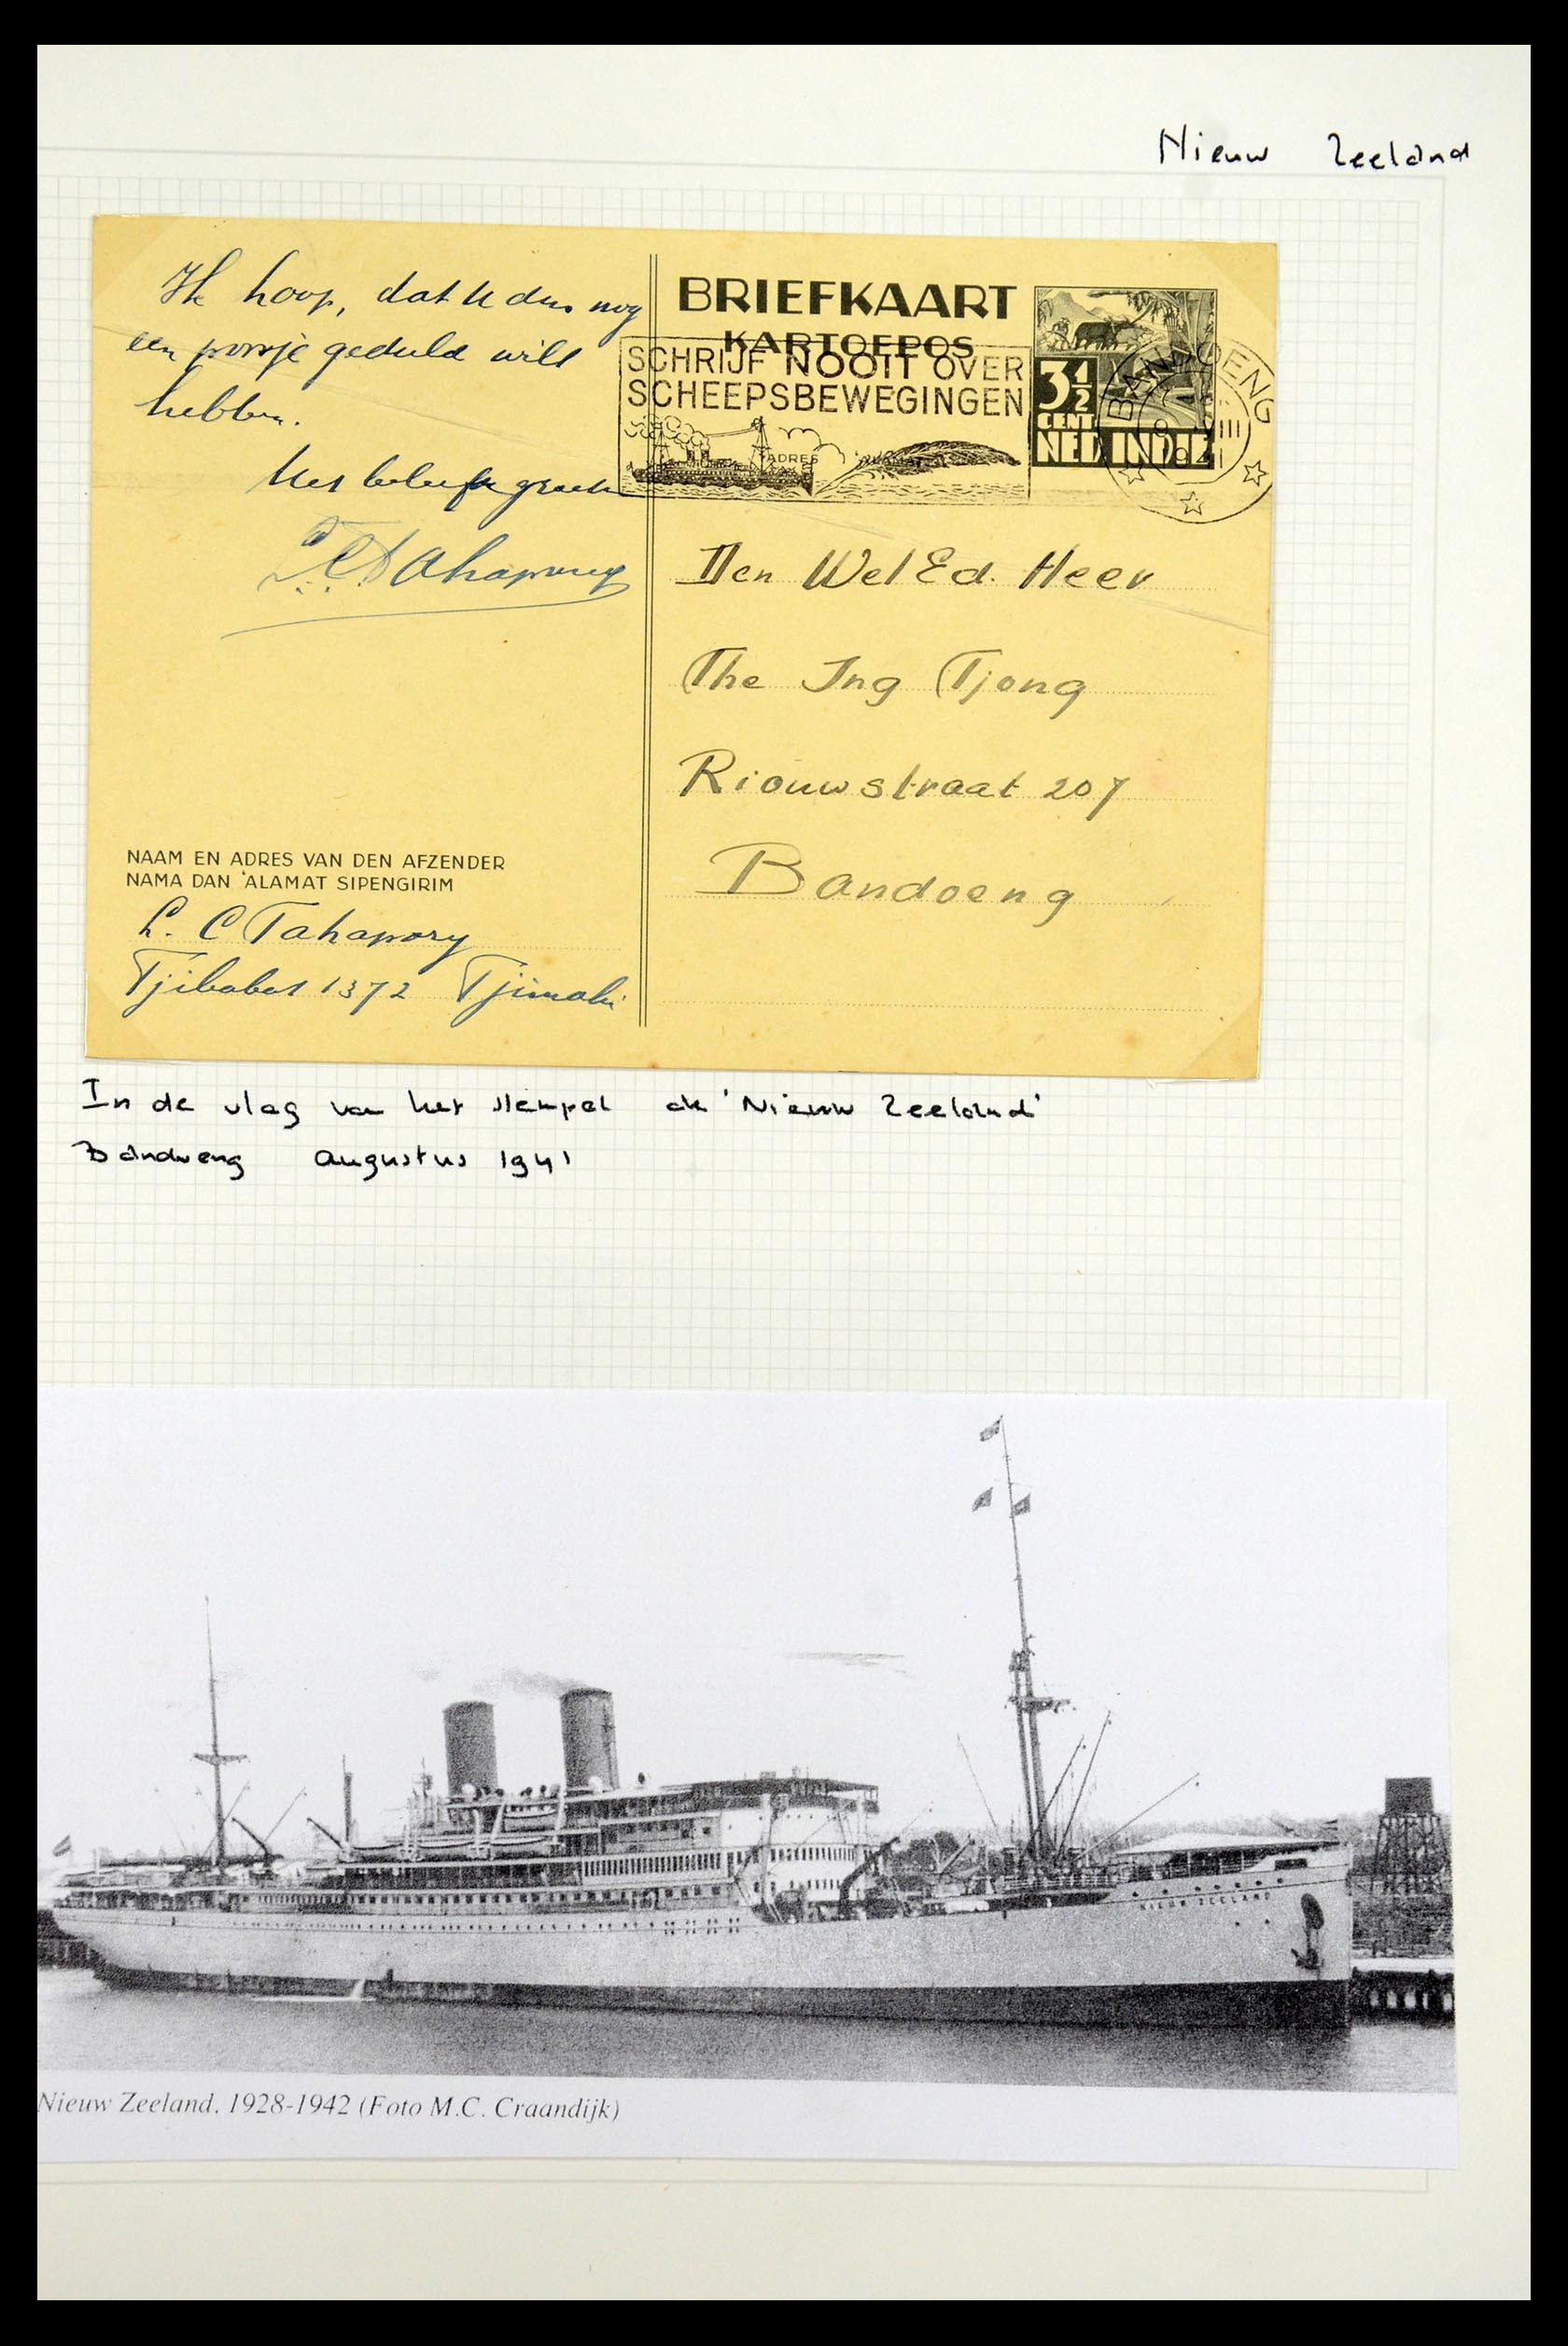 Nieuw Zeeland
Ik hoop, dat U dus nog
een poosje geduld wilt
hebben.
Met beleefde groeten
Tahapary
BRIEFKAART
KARTOEPOS
SCHRIJF NOOIT OVER
SCHEEPSBEWEGINGEN
ADRES
3½
CENT
NED INDIË
BANDOENG
Den WelEd. Heer
The Ing Tjong
Riouwstraat 207
Bandoeng
NAAM EN ADRES VAN DEN AFZENDER
NAMA DAN 'ALAMAT SIPENGIRIM
L. C Tahapary
Tjibabat 1372 Tjimahi
In de vlag van het stempel de 'Nieuw Zeeland'
Bandoeng augustus 1941
NIEUW ZEELAND
Nieuw Zeeland. 1928-1942 (Foto M.C. Craandijk)